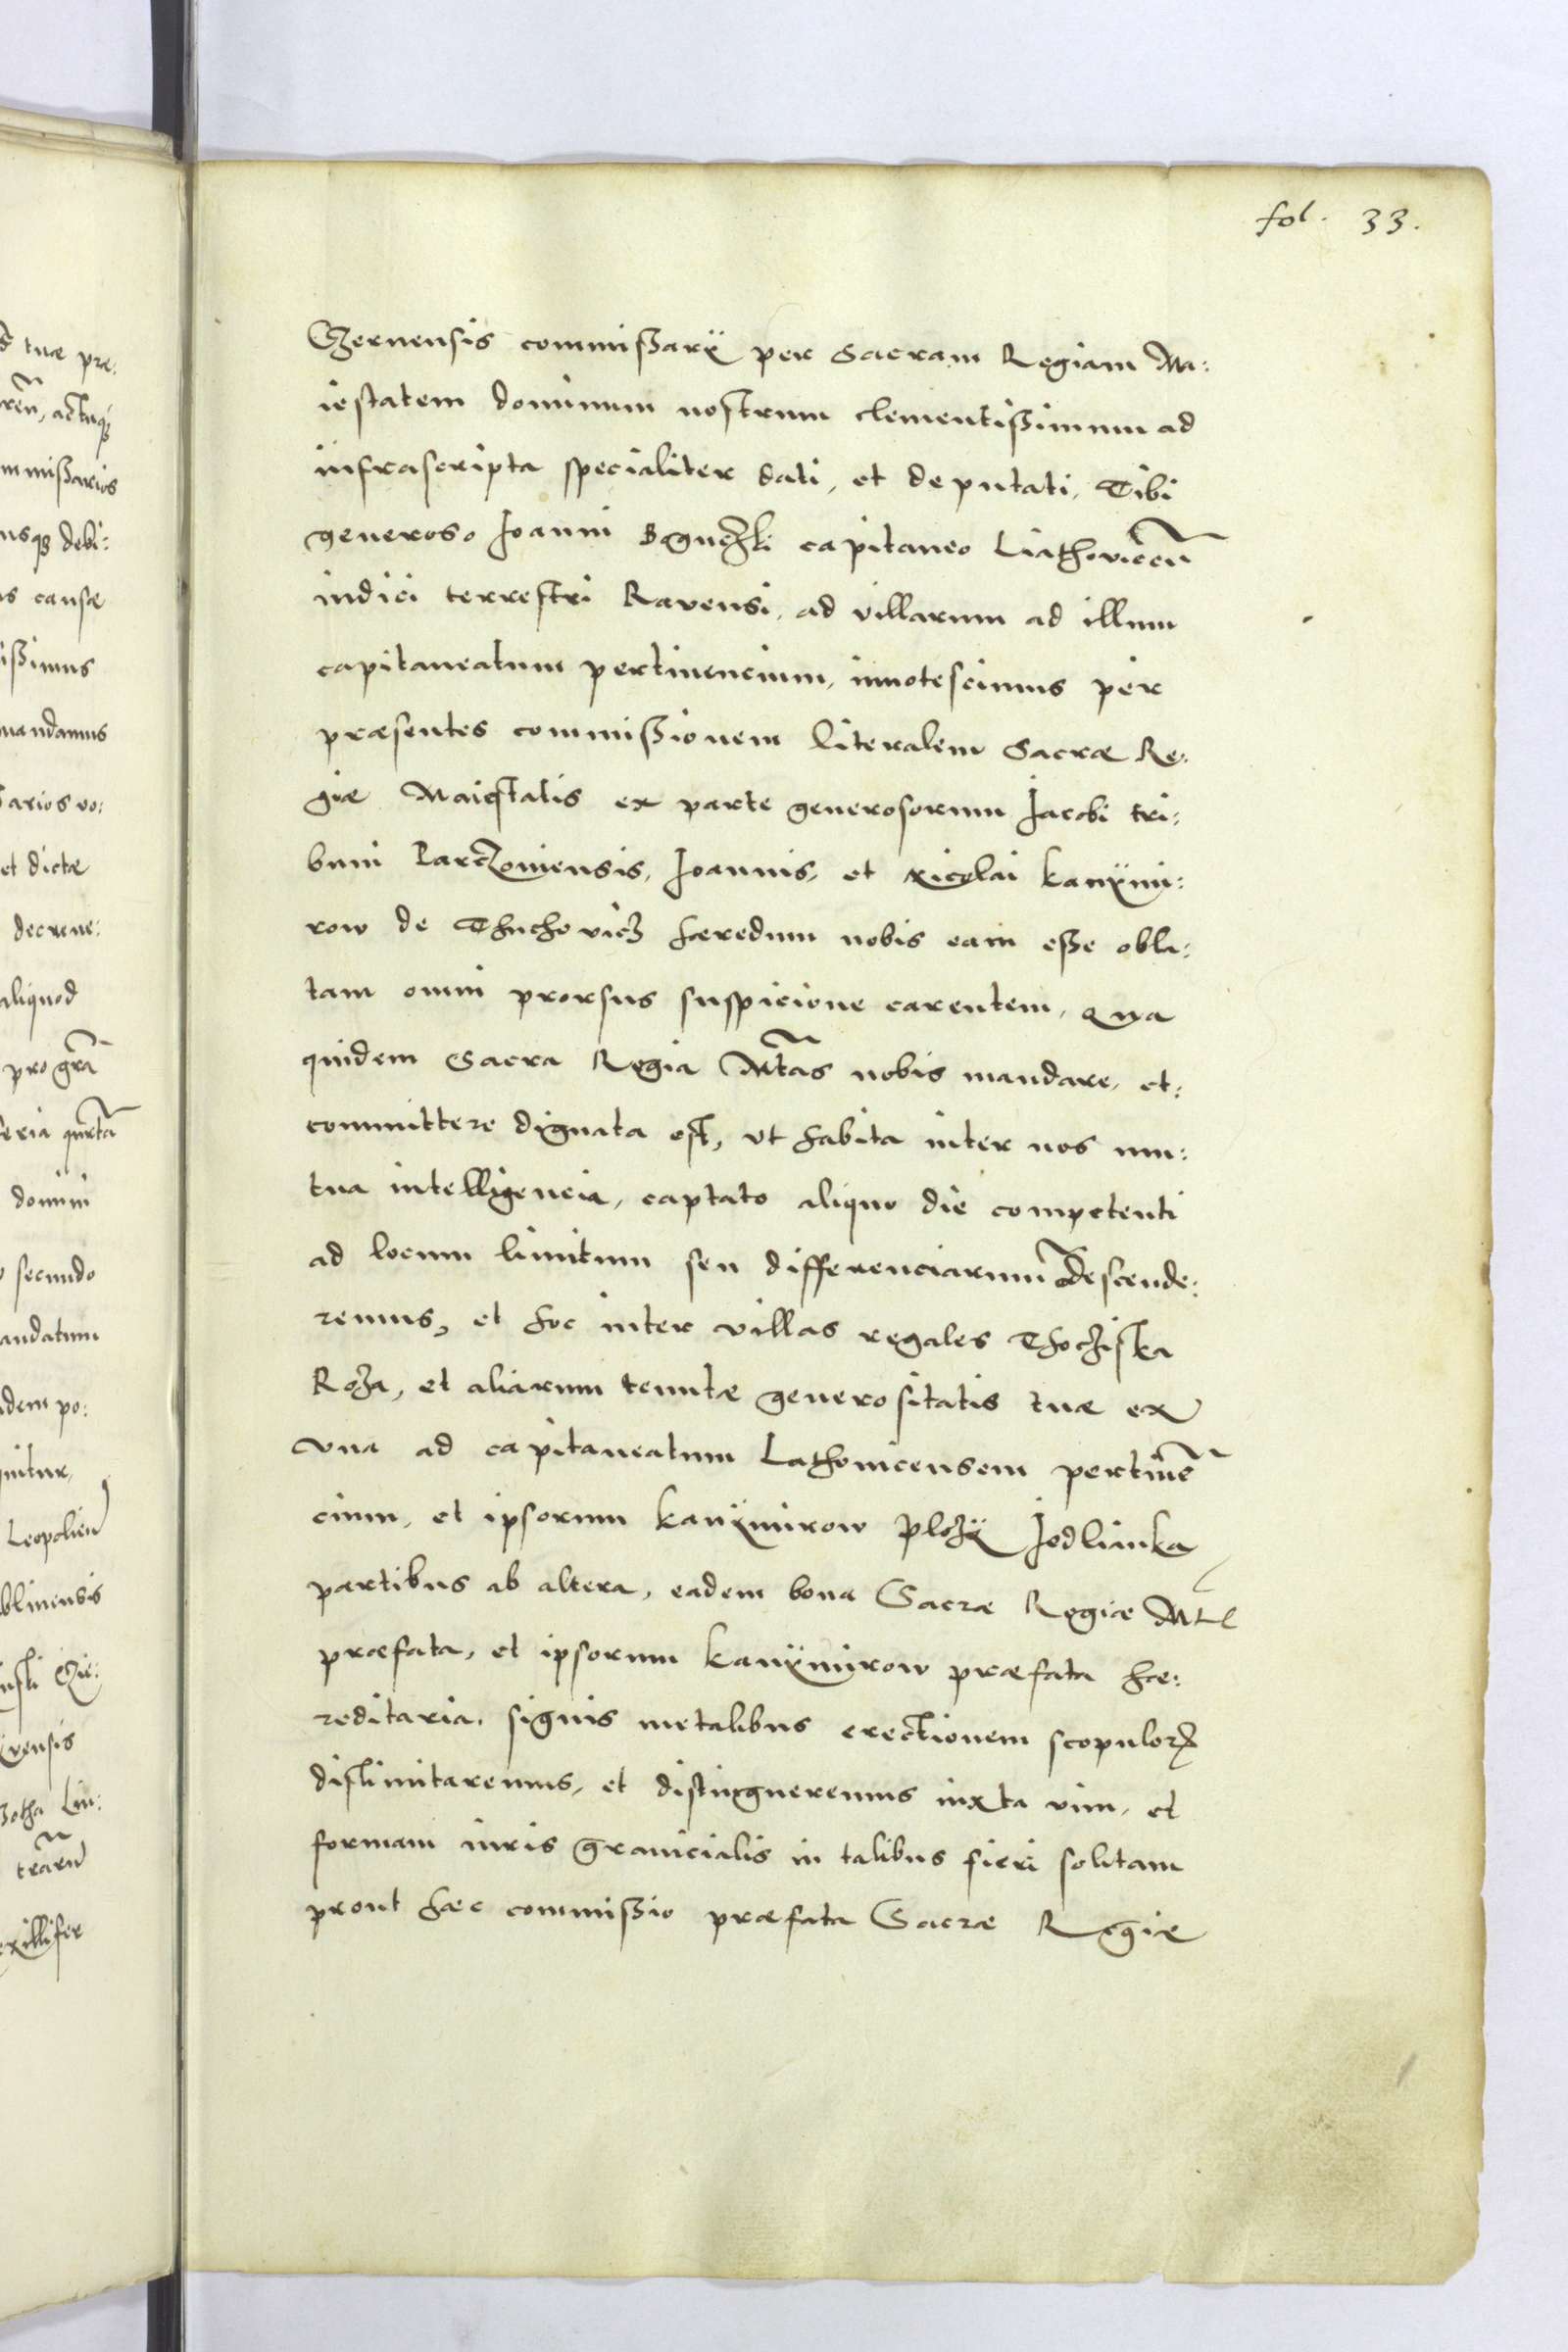 fol. 33.
Czernensis commißarÿ per Sacram Regiam Ma:
iestatem dominum nostrum clementißimum ad
infrascripta specialiter dati, et deputati, Tibi
generoso Ioanni capitaneo Liathoviceñ
iudici terrestri Ravensi, ad villarum ad illum
capitaneatum pertinencium, innotescimus per
præsentes commißionem literalem Sacræ Re:
giæ Maiestatis ex parte generosorum Jacobi tri:
buni Parczouiensis, Ioannis, et Nicolai Kanÿmi:
row de Thuchovicz hæredum nobis eam eße obla:
tam omni prorsus suspicione carentem, Qua
quidem Sacra Regia Mtãs nobis mandare, et:
committere dignata est, ut habita inter nos mu:
tua intelligencia, captato aliquo die competenti
ad locum limitum seu differenciarum descende:
remus, et hoc inter villas regales Thochiska
Roza, et aliarum tenutæ generositatis tuæ ex
vna ad capitaneatum Lathouicensem pertinẽ
cium, et ipsorum Kanÿmirow Plozÿ Jedlianka
partibus ab altera, eadem bona Sacræ Regiæ Mtĩ
præfata, et ipsorum Kanÿmirow præfata hæ:
reditaria, signis metalibus erectionem scopulorꝝ
distimitaremus, et distingueremus iuxta vim, et
formam iuris granicialis in talibus fieri solitam
prout hæc commißio præfata Sacræ Regiæ
tuæ præ:
reñ, actuqꝫ
mmißarios
usqꝫ debi:
s causæ
ißimus
mandamus
arios vo:
et dictæ
decreue:
aliquod
pro grã
feria quartã
domini
secundo
andatum
dem po:
nitur,
Leopolieñ
blinensis
vensis
exillifer